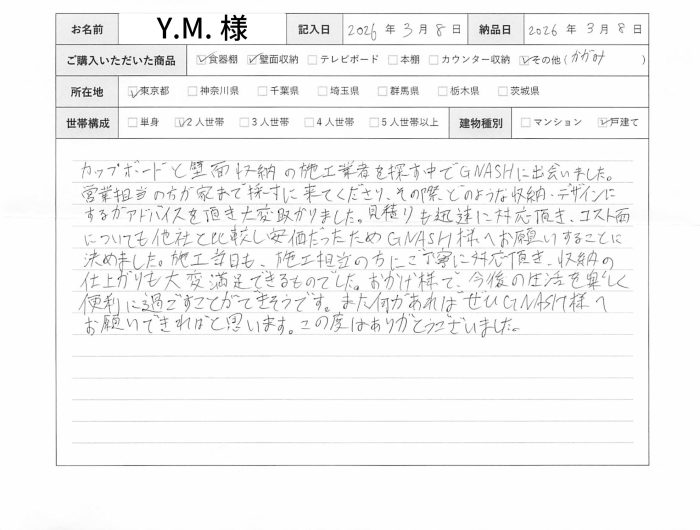 お名前 Y.M. 様 記入日 2026 年 3 月 8 日 納品日 2026 年 3 月 8 日
ご購入いただいた商品 ☑食器棚 ☑壁面収納 □テレビボード □本棚 □カウンター収納 ☑その他 (かがみ )
所在地 ☑東京都 □神奈川県 □千葉県 □埼玉県 □群馬県 □栃木県 □茨城県
世帯構成 □単身 ☑2人世帯 □3人世帯 □4人世帯 □5人世帯以上 建物種別 □マンション ☑戸建て
カップボードと壁面収納の施工業者を探す中でGNASHに出会いました。
営業担当の方が家まで採寸に来てくださり、その際、どのような収納・デザインに
するかアドバイスを頂き大変助かりました。見積りも迅速に対応頂き、コスト面
についても他社と比較し安価だったためGNASH様へお願いすることに
決めました。施工当日も、施工担当の方にご丁寧に対応頂き、収納の
仕上がりも大変満足できるものでした。おかげ様で、今後の生活を楽しく
便利に過ごすことができそうです。また何かあればぜひGNASH様へ
お願いできればと思います。この度はありがとうございました。